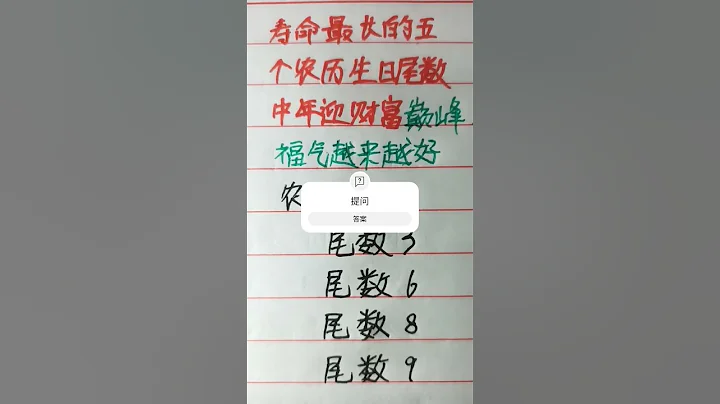 寿命最长的五
个农历生日尾数
中年迎财富巅峰
福气越来越好
农
提问
答案
尾数3
尾数6
尾数8
尾数9